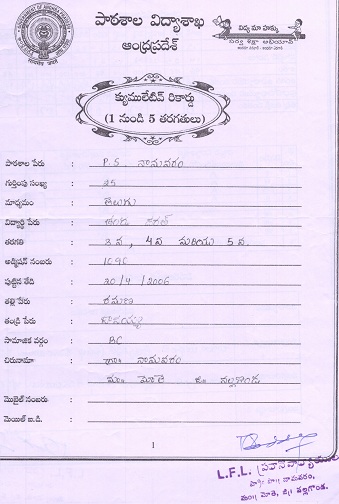 పాఠశాల విద్యాశాఖ
ఆంధ్రప్రదేశ్
విద్య మా హక్కు
సర్వ శిక్షా అభియాన్
క్యుములేటివ్ రికార్డు
(1 నుండి 5 తరగతులు)
పాఠశాల పేరు : P.S. నామవరం
గుర్తింపు సంఖ్య : 25
మాధ్యమం : తెలుగు
విద్యార్థి పేరు :
తరగతి : 3 వ, 4 వ మరియు 5 వ.
అడ్మిషన్ నంబరు : 1090
పుట్టిన తేది : 20/4/2006
తల్లి పేరు : రమణ
తండ్రి పేరు :
సామాజిక వర్గం : BC
చిరునామా : గ్రా॥ నామవరం
మం॥ మోతె జి॥ నల్లగొండ
మొబైల్ నంబరు :
మెయిల్ ఐ.డి. :
1
L.F.L. ప్రధానోపాధ్యాయులు
నామవరం,
మం॥ మోతె, జి॥ నల్లగొండ.